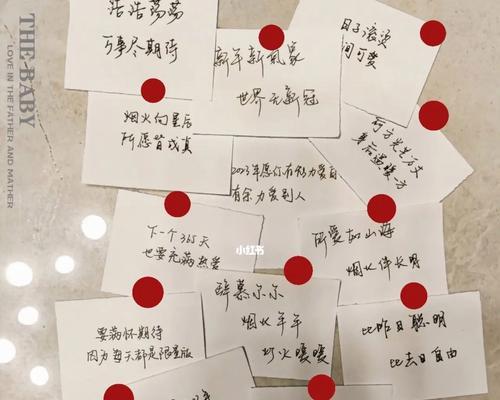 THE BABY
LOVE IN THE FATHER AND MATHER
浩浩荡荡
万事尽期待
新年新氣象
世界无新冠
日子滚烫
间可爱
烟火向星辰
所愿皆成真
前方光芒万丈
身后温暖一方
2023年愿你有能力爱自
有余力爱别人
下一个365天
也要充满热爱
小红书
所爱如山海
烟火伴长明
辞暮尔尔
烟火年年
灯火暖暖
要满怀期待
因为每天都是限量版
比昨日聪明
比去日自由